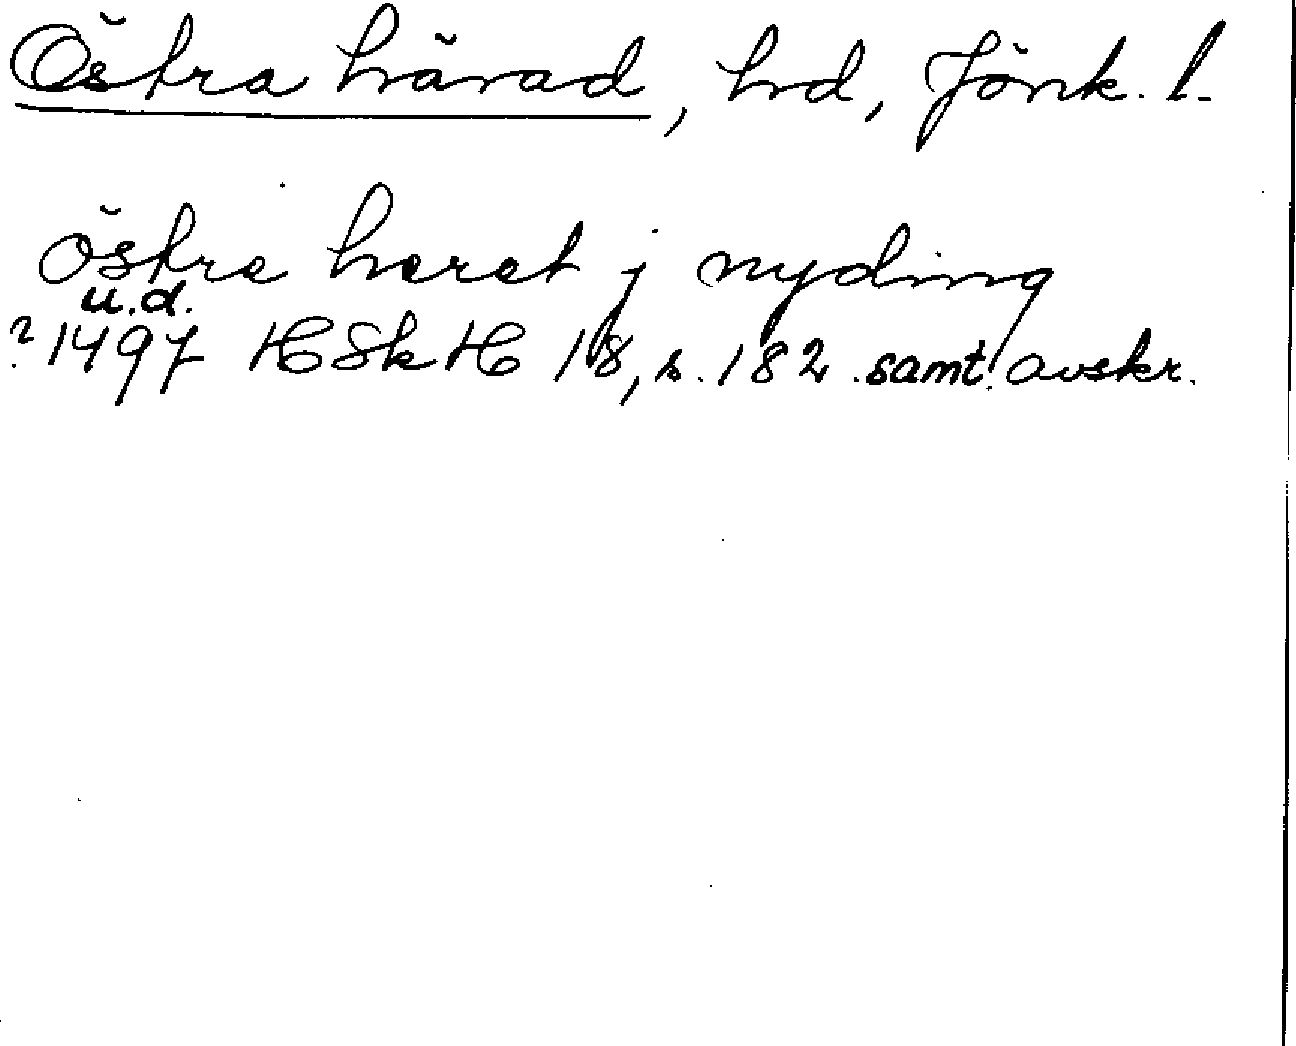 Östra härad, hrd, Jönk. l.
östre heret j nyding
u.d.
?1497 HSkH 18, s. 182 samt. avskr.